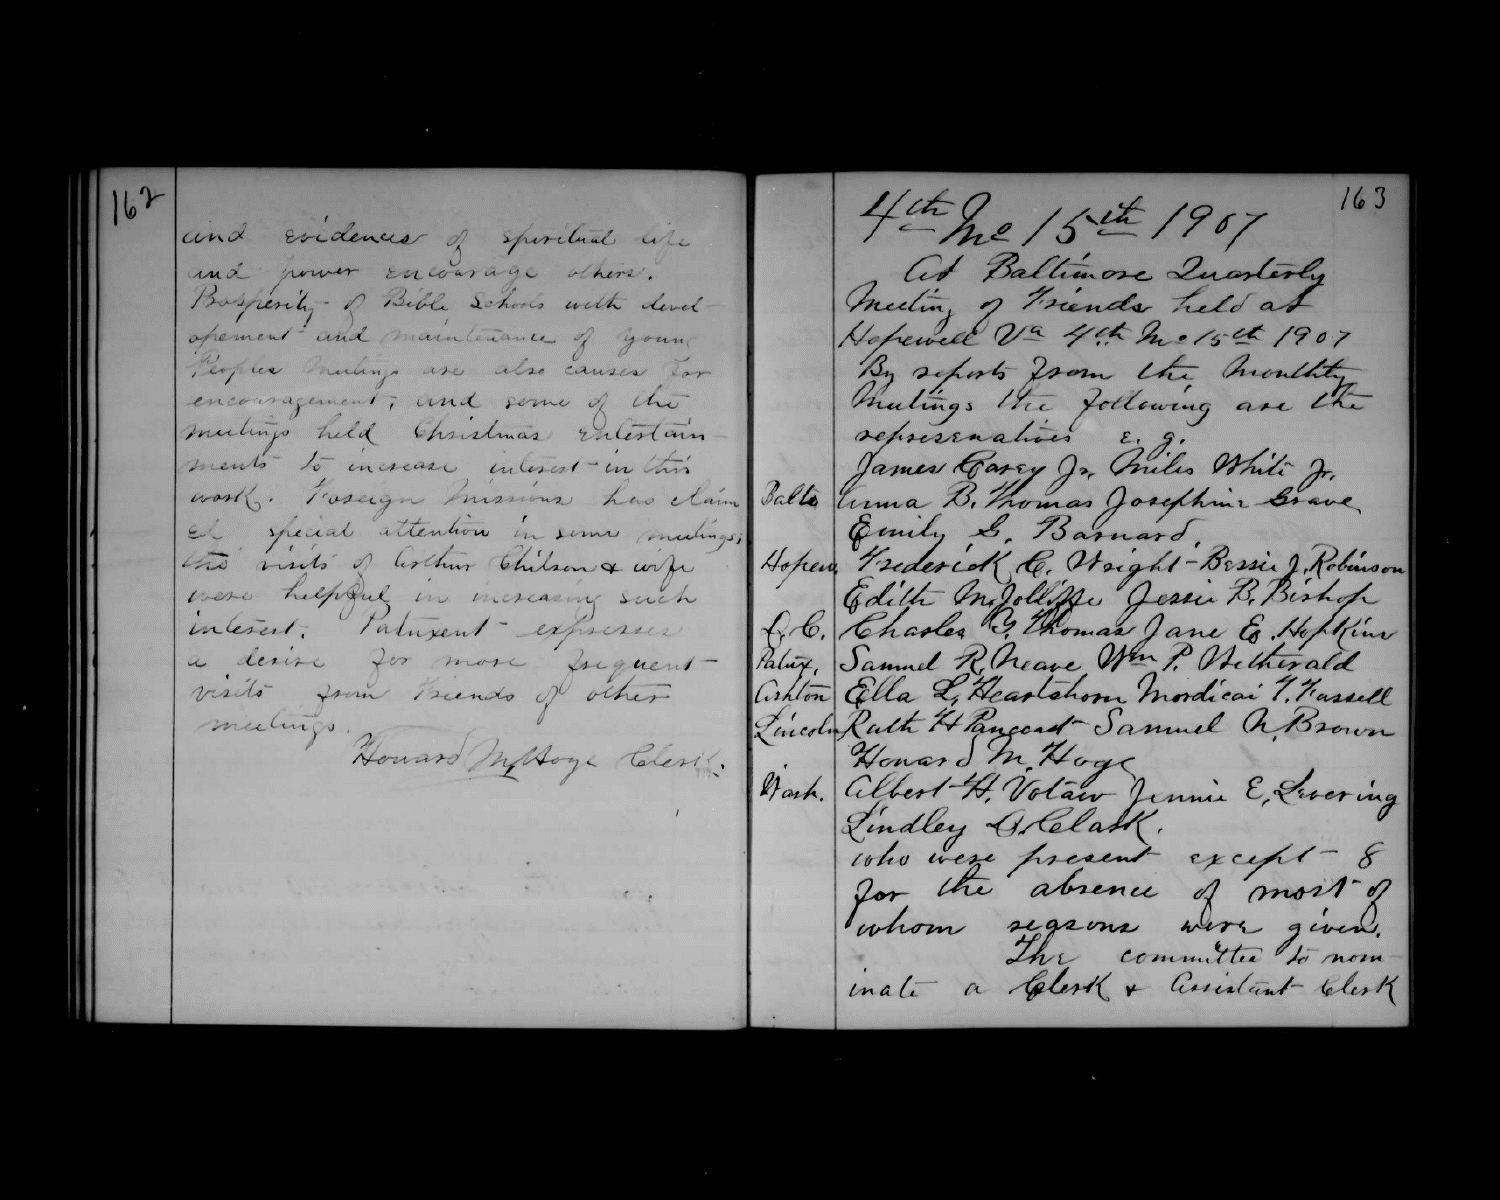 162
and evidences of spiritual life
and power encourage others.
Prosperity of Bible Schools with devel-
opement and maintenance of Young
Peoples Meetings are also causes for
encouragement; and some of the
meetings held Christmas entertain-
ments to increase interest in this
work. Foreign Missions has claim
ed special attention in some meetings;
the visits of Arthur Chilson & wife
were helpful in increasing such
interest. Patuxent expresses
a desire for more frequent
visits from Friends of other
meetings.
Howard M. Hoge Clerk.
163
4th Mo 15th 1907
At Baltimore Quarterly
Meeting of Friends held at
Hopewell Va 4th Mo 15th 1907
By reports from the Monthly
Meetings the following are the
represenatives e. g.
James Carey Jr. Miles White Jr.
Balto Anna B. Thomas Josephine Grave
Emily G. Barnard.
Hopew. Frederick C. Wright - Bessie J. Robinson
Edith M. Jolliffe Jessie B. Bishop
D. C. Charles Y. Thomas Jane E. Hopkins
Patux. Samuel R. Neave Wm P. Wetherald
Ashton Ella L. Heartshorn Mordicai T. Fussell
Lincoln Ruth H Pancoast Samuel N. Brown
Howard M. Hoge
Wash. Albert H. Votaw Jennie E. Levering
Lindley D. Clark.
who were present except 8
for the absence of most of
whom reasons were given.
The committee to nom-
inate a Clerk & Assistant Clerk